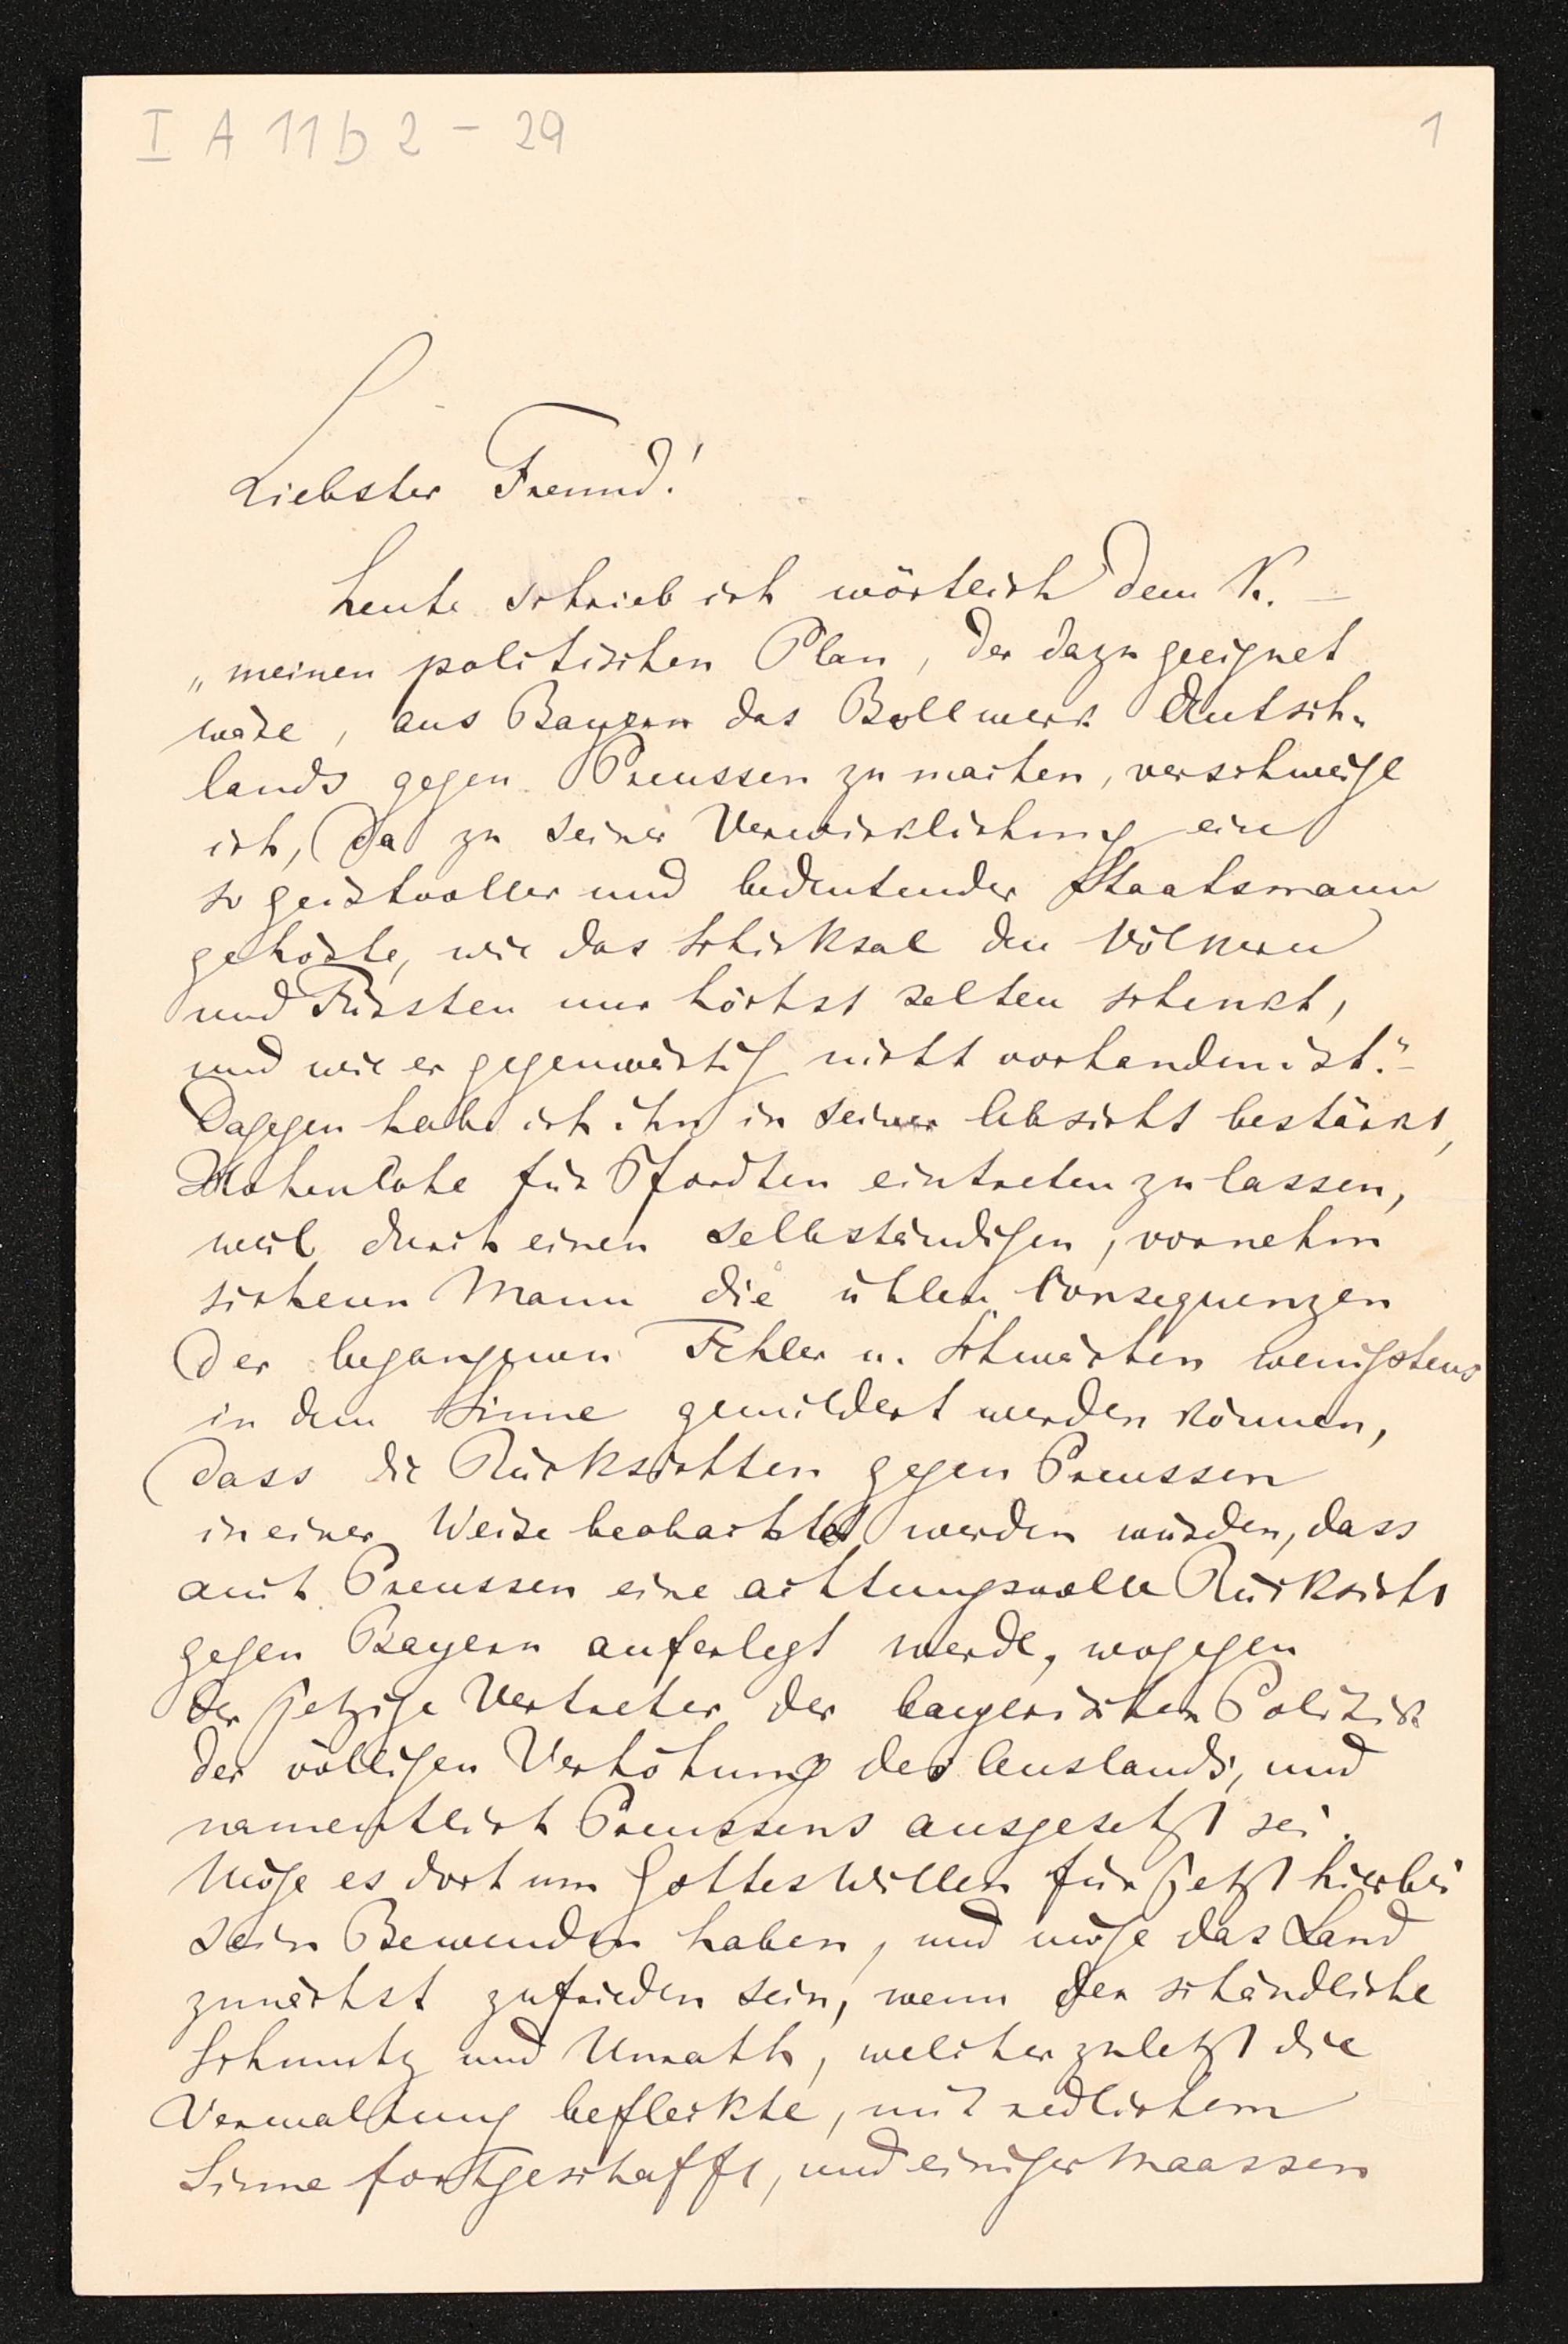 I A 11 b 2 – 29
1
Liebster Freund!
heute schrieb ich wörtlich dem K. –
„meinen politischen Plan, der dazu geeignet
wäre, aus Bayern das Bollwerk Deutsch-
lands gegen Preussen zu machen, verschweige
ich, da zu seiner Verwirklichung ein
so geistvoller und bedeutender Staatsmann
gehörte, wie das Schicksal den Völkern
und Fürsten nur höchst selten schenkt,
und wie er gegenwärtig nicht vorhanden ist." –
Dagegen habe ich ihn in seiner Absicht bestärkt,
Hohenlohe für Pfordten eintreten zu lassen,
weil durch einen selbständigen, vornehm
sicheren Mann die üblen Consequenzen
der begangenen Fehler u. Schwächen wenigstens
in dem Sinne gemildert werden können,
dass die Rücksichten gegen Preussen
in einer Weise beobachtet werden würden, dass
auch Preussen eine achtungsvolle Rücksicht
gegen Bayern auferlegt werde, wogegen
der jetzige Vertreter der bayerischen Politik
der völligen Verhöhung des Auslands, und
namentlich Preussens ausgesetzt sei.
Möge es dort um Gottes Willen für jetzt hierbei
sein Bewenden haben, und möge das Land
zunächst zufrieden sein, wenn der schändliche
Schmutz und Unrath, welcher zuletzt die
Verwaltung befleckte, mit redlichem
Sinne fortgeschafft, und einiger Maassen